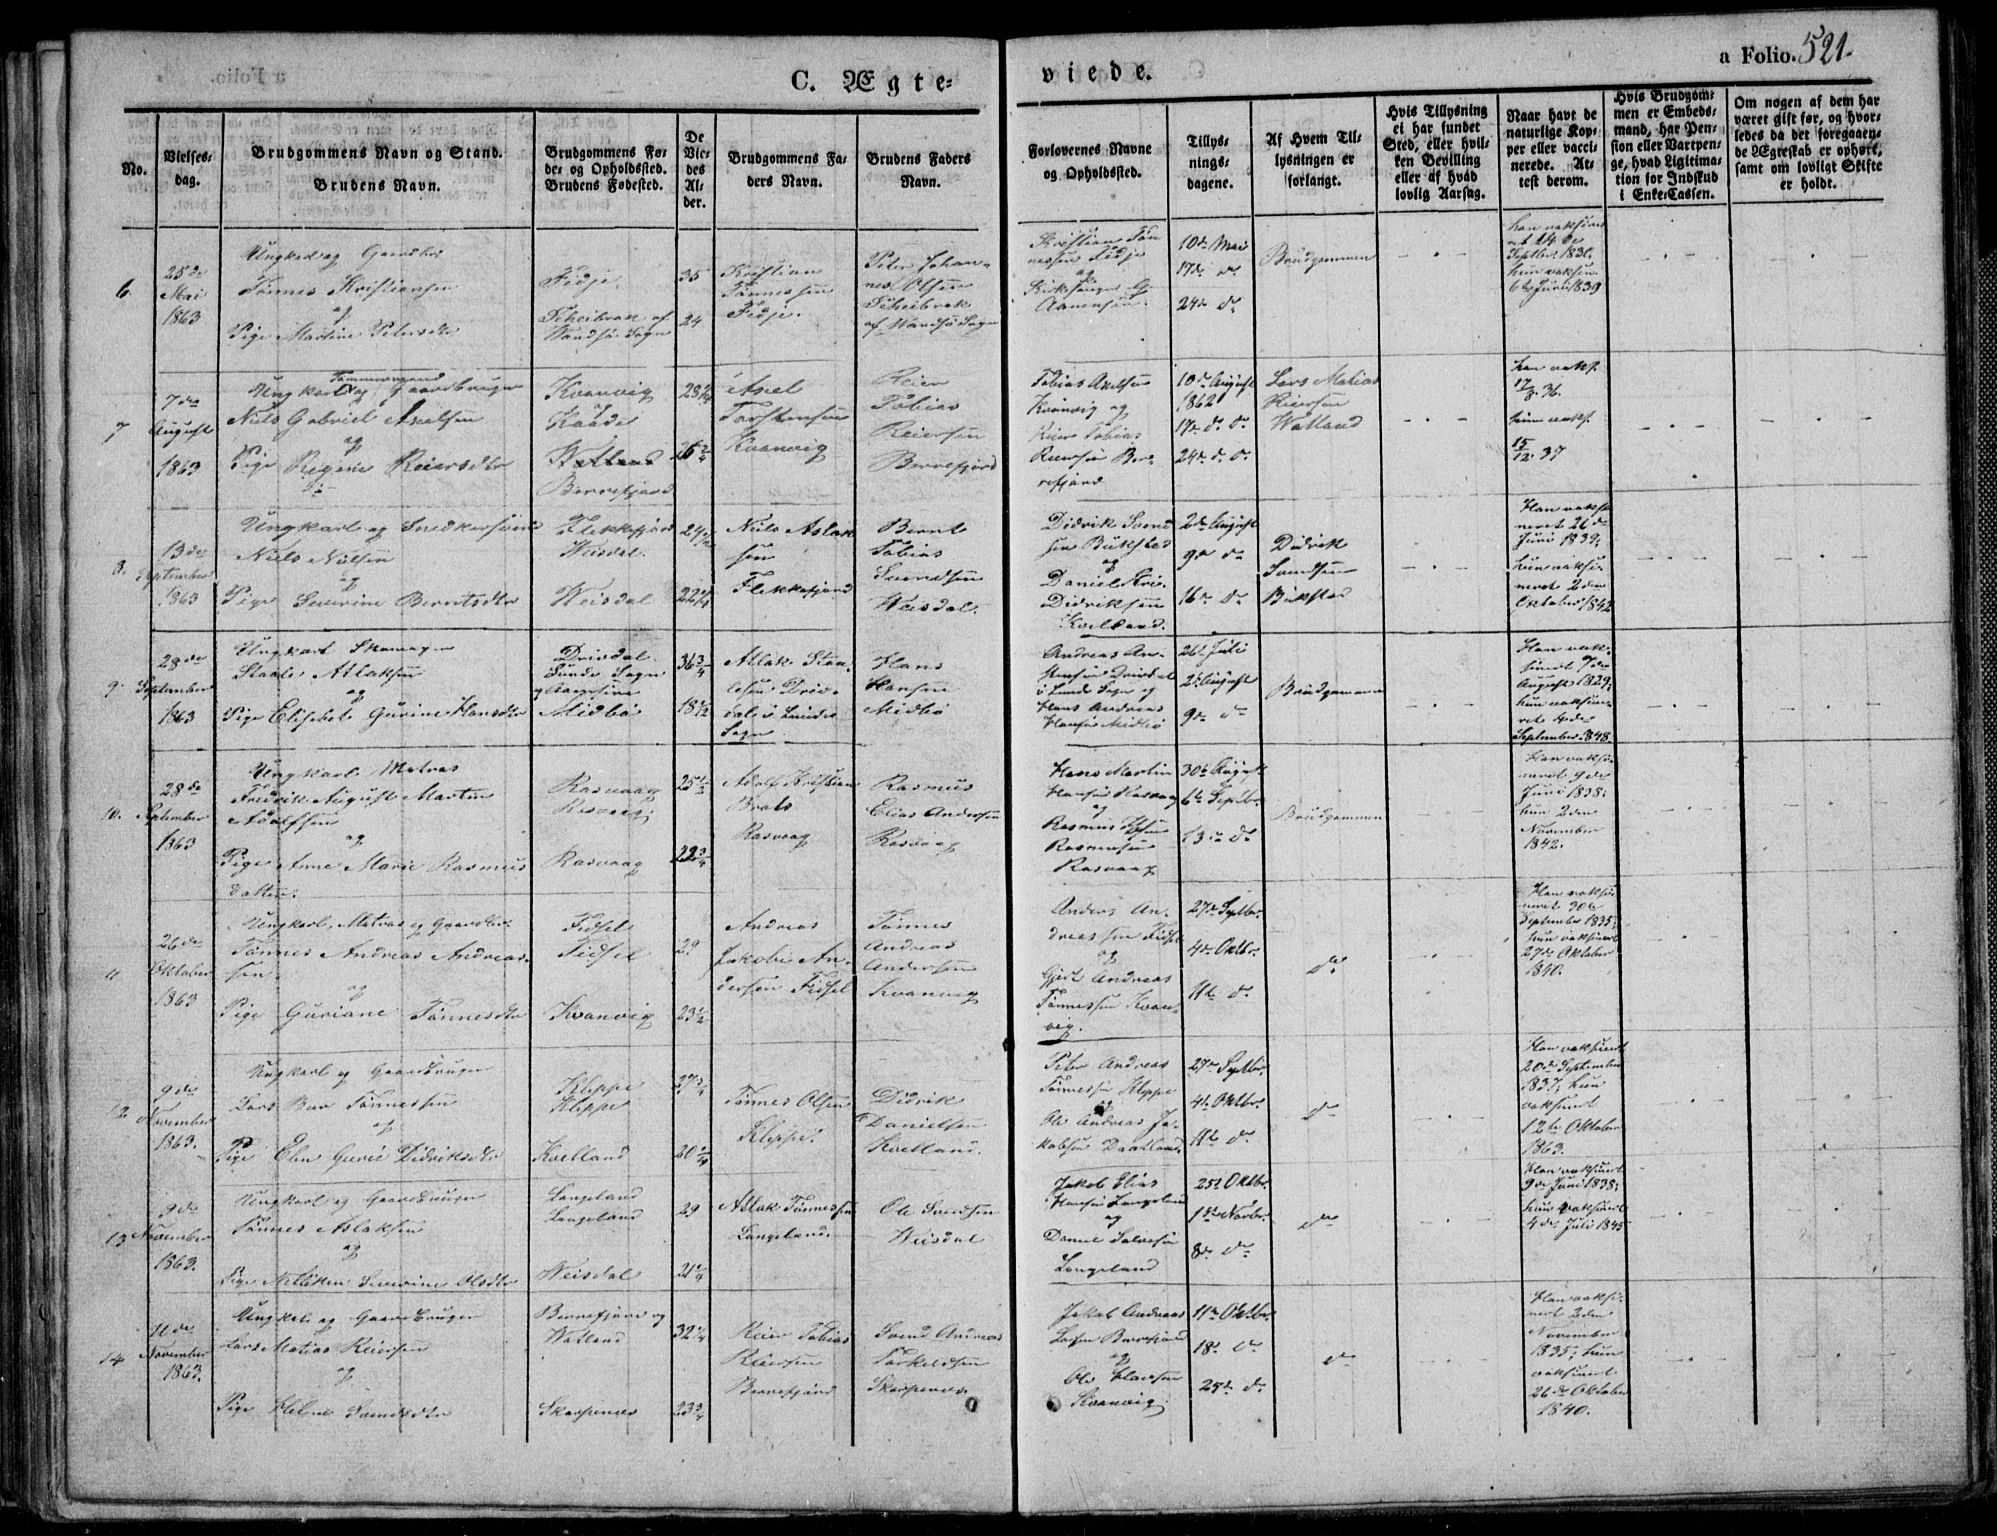 C. Ægte=
viede.
a Folio. 521.
No.
Vielses-
dag.
Brudgommens Navn og Stand.
Brudens Navn.
Brudgommens Fø-
de- og Opholdssted.
Brudens Fødested.
De
Vie-
des
Al-
der.
Brudgommens Fa-
ders Navn.
Brudens Faders
Navn.
Forlovernes Navne
og Opholdssted.
Tillys-
nings-
dagene.
Af Hvem Til-
lysningen er
forlangt.
Hvis Tillysning
ei har fundet
Sted, eller hvil-
ken Bevilling
eller af hvad
lovlig Aarsag.
Naar havt de
naturlige Kop-
per eller vacci-
nerede. At-
test derom.
Hvis Brudgom-
men er Embeds-
mand, har Pen-
sion eller Vartpen-
ge, hvad Ligitima-
tion for Indskud
i Enke-Cassen.
Om nogen af dem har
været gift før, og hvor-
ledes da det foregaaen-
de Ægteskab er ophørt,
samt om lovligt Skifte
er holdt.
6.
25de
Mai
1863
Ungkarl og
Tønnes Kristiansen
og
Pige Martine Petersdtr
Fedje
af
Sogn
35
24
Kristian
Tønnessen
Fedje.
Peter Johan-
nes Olsen
Kristian Tøn
nessen Fedje
og
10de Mai
17de do
24de do
Brudgommen
han vaksine
ret 14de
Septbr 1830.
hun vaksin.
6te Juni 1839
7
7de
August
1863
Tømmermand
Ungkarl og Gaardbruger
Niels Gabriel Axelsen
og
Pige Regine Reiersdtr
Kvanvig
Watland
Berrefjord
28 3/4
26 3/4
Axel
Torstensen
Kvanvig
Reier
Tobias
Reiersen
Berrefjord
Tobias Axelsen
Kvanvig og
Reier Tobias
Reiersen Ber-
refjord
10de August
1862
17de do
24de do
Lars Matias
Reiersen
Watland
han vaks.
17/8. 36.
hun vaks.
15/12. 37
8.
13de
September
1863
Ungkarl og Snedkersvend
Niels Nielsen
og
Pige Severine Berntsdtr
Flekkefjord
Weisdal.
Weisdal
Niels Aslak
sen
Flekkefjord
Bernt
Tobias
Svendsen
Weisdal.
Didrik Svend
sen Bukstad
og
Daniel
Didriksen
Kvelland.
2de August
9de do
16de do
Didrik
Svendsen
Bukstad
Han vaksi
neret 26de
Juni 1839;
hun vaksi-
neret 2den
Oktober 1842
9.
28de
September
1863
Ungkarl Skomager
Staale Aslaksen
og
Pige Elisebet Gurine Hansdtr
Drivdal
Lunde Sogn
Midbø
36 3/4
Aslak Staa
lesen Driv-
dal i Lunde
Sogn
Hans
Hansen
Midbø
Andreas An-
i Lunde Sogn og
Hans Andreas
Hansen Midbø
26de Juli
2de August
9de do
Brudgommen
Han vak-
sineret 7de
August 1829;
hun vaksine-
ret 4de
September 1848.
10.
28de
September
1863
Ungkarl Matros
Fredrik August Martin
Adolfsen
og
Pige Anne Marie Rasmus
datter.
Rasvaag
Rasvaag.
Rasvaag
25 1/2
22 3/4
Adolf Kristian
Rasvaag
Rasmus
Elias Andersen
Rasvaag
Hans Martin
Hansen Rasvaag
og
Rasmus
Rasmussen
Rasvaag
30te August
6te Septbr.
13de do
Brudgommen
Han vaksi-
neret 9de
Juni 1838;
hun 2den
November
1842.
11
26de
Oktober
1863
Ungkarl, Matros og
Tønnes Andreas Andreas-
sen
og
Pige Guriane Tønnesdtr
Fidsel
Fidsel
Kvanvig
29.
23 1/2
Andreas
Jakobi An-
dersen Fidsel
Tønnes
Andreas
Andersen
Kvanvig
Anders An-
dreassen Fidsel
og
Gjert Andreas
Tønnessen Kvan-
vig.
27de Septbr.
4de Oktbr.
11te do
do
Han vaksi-
neret 30te
September 1835;
hun vaksineret
27de Oktober
1840.
12
9de
November
1863.
Ungkarl og Gaardbruger
Lars Tønnessen
og
Pige Didriksdtr
Kleppe
Kleppe
Kvelland
27 3/4
20 1/4
Tønnes Olsen
Kleppe.
Didrik
Danielsen
Kvelland.
Peter Andreas
Tønnessen Kleppe
og
Ole Andreas Ja-
kobsen
27de Septbr.
4de Oktbr.
11te do
do
Han vaksineret
20de September
1837; hun
vaksineret
12te Oktober
1863.
13
9de
November
1863.
Ungkarl og Gaardbruger
Tønnes Aslaksen
og
Pige Severine Olsdtr
Langeland
Langeland
Weisdal
29
21 1/4
Aslak Tønnessen
Langeland.
Ole Svendsen
Weisdal
Jakob Elias
Hansen Langeland
og
Daniel
Langeland
25de Oktbr.
1ste Novbr.
8de do
do
Han vaksineret
9de Juni 1838;
hun vaksineret
4de Juli 1845
14
11te
November
1863.
Ungkarl og Gaardbruger
Lars Matias Reiersen
og
Pige Helene Svendsdtr
Berrefjord og
Watland
Skarpenes
32 1/4
23 3/4
Reier Tobias
Reiersen
Berrefjord
Svend Andreas
Torkeldsen
Skarpenes.
Jakob Andreas
Larsen Berrefjord
og
Ole Hansen
Kvanvig.
11te Oktbr.
18de do
25de do
do
Han vaksi-
neret 2den
November
1835; hun
vaksineret
26de Oktober
1840.